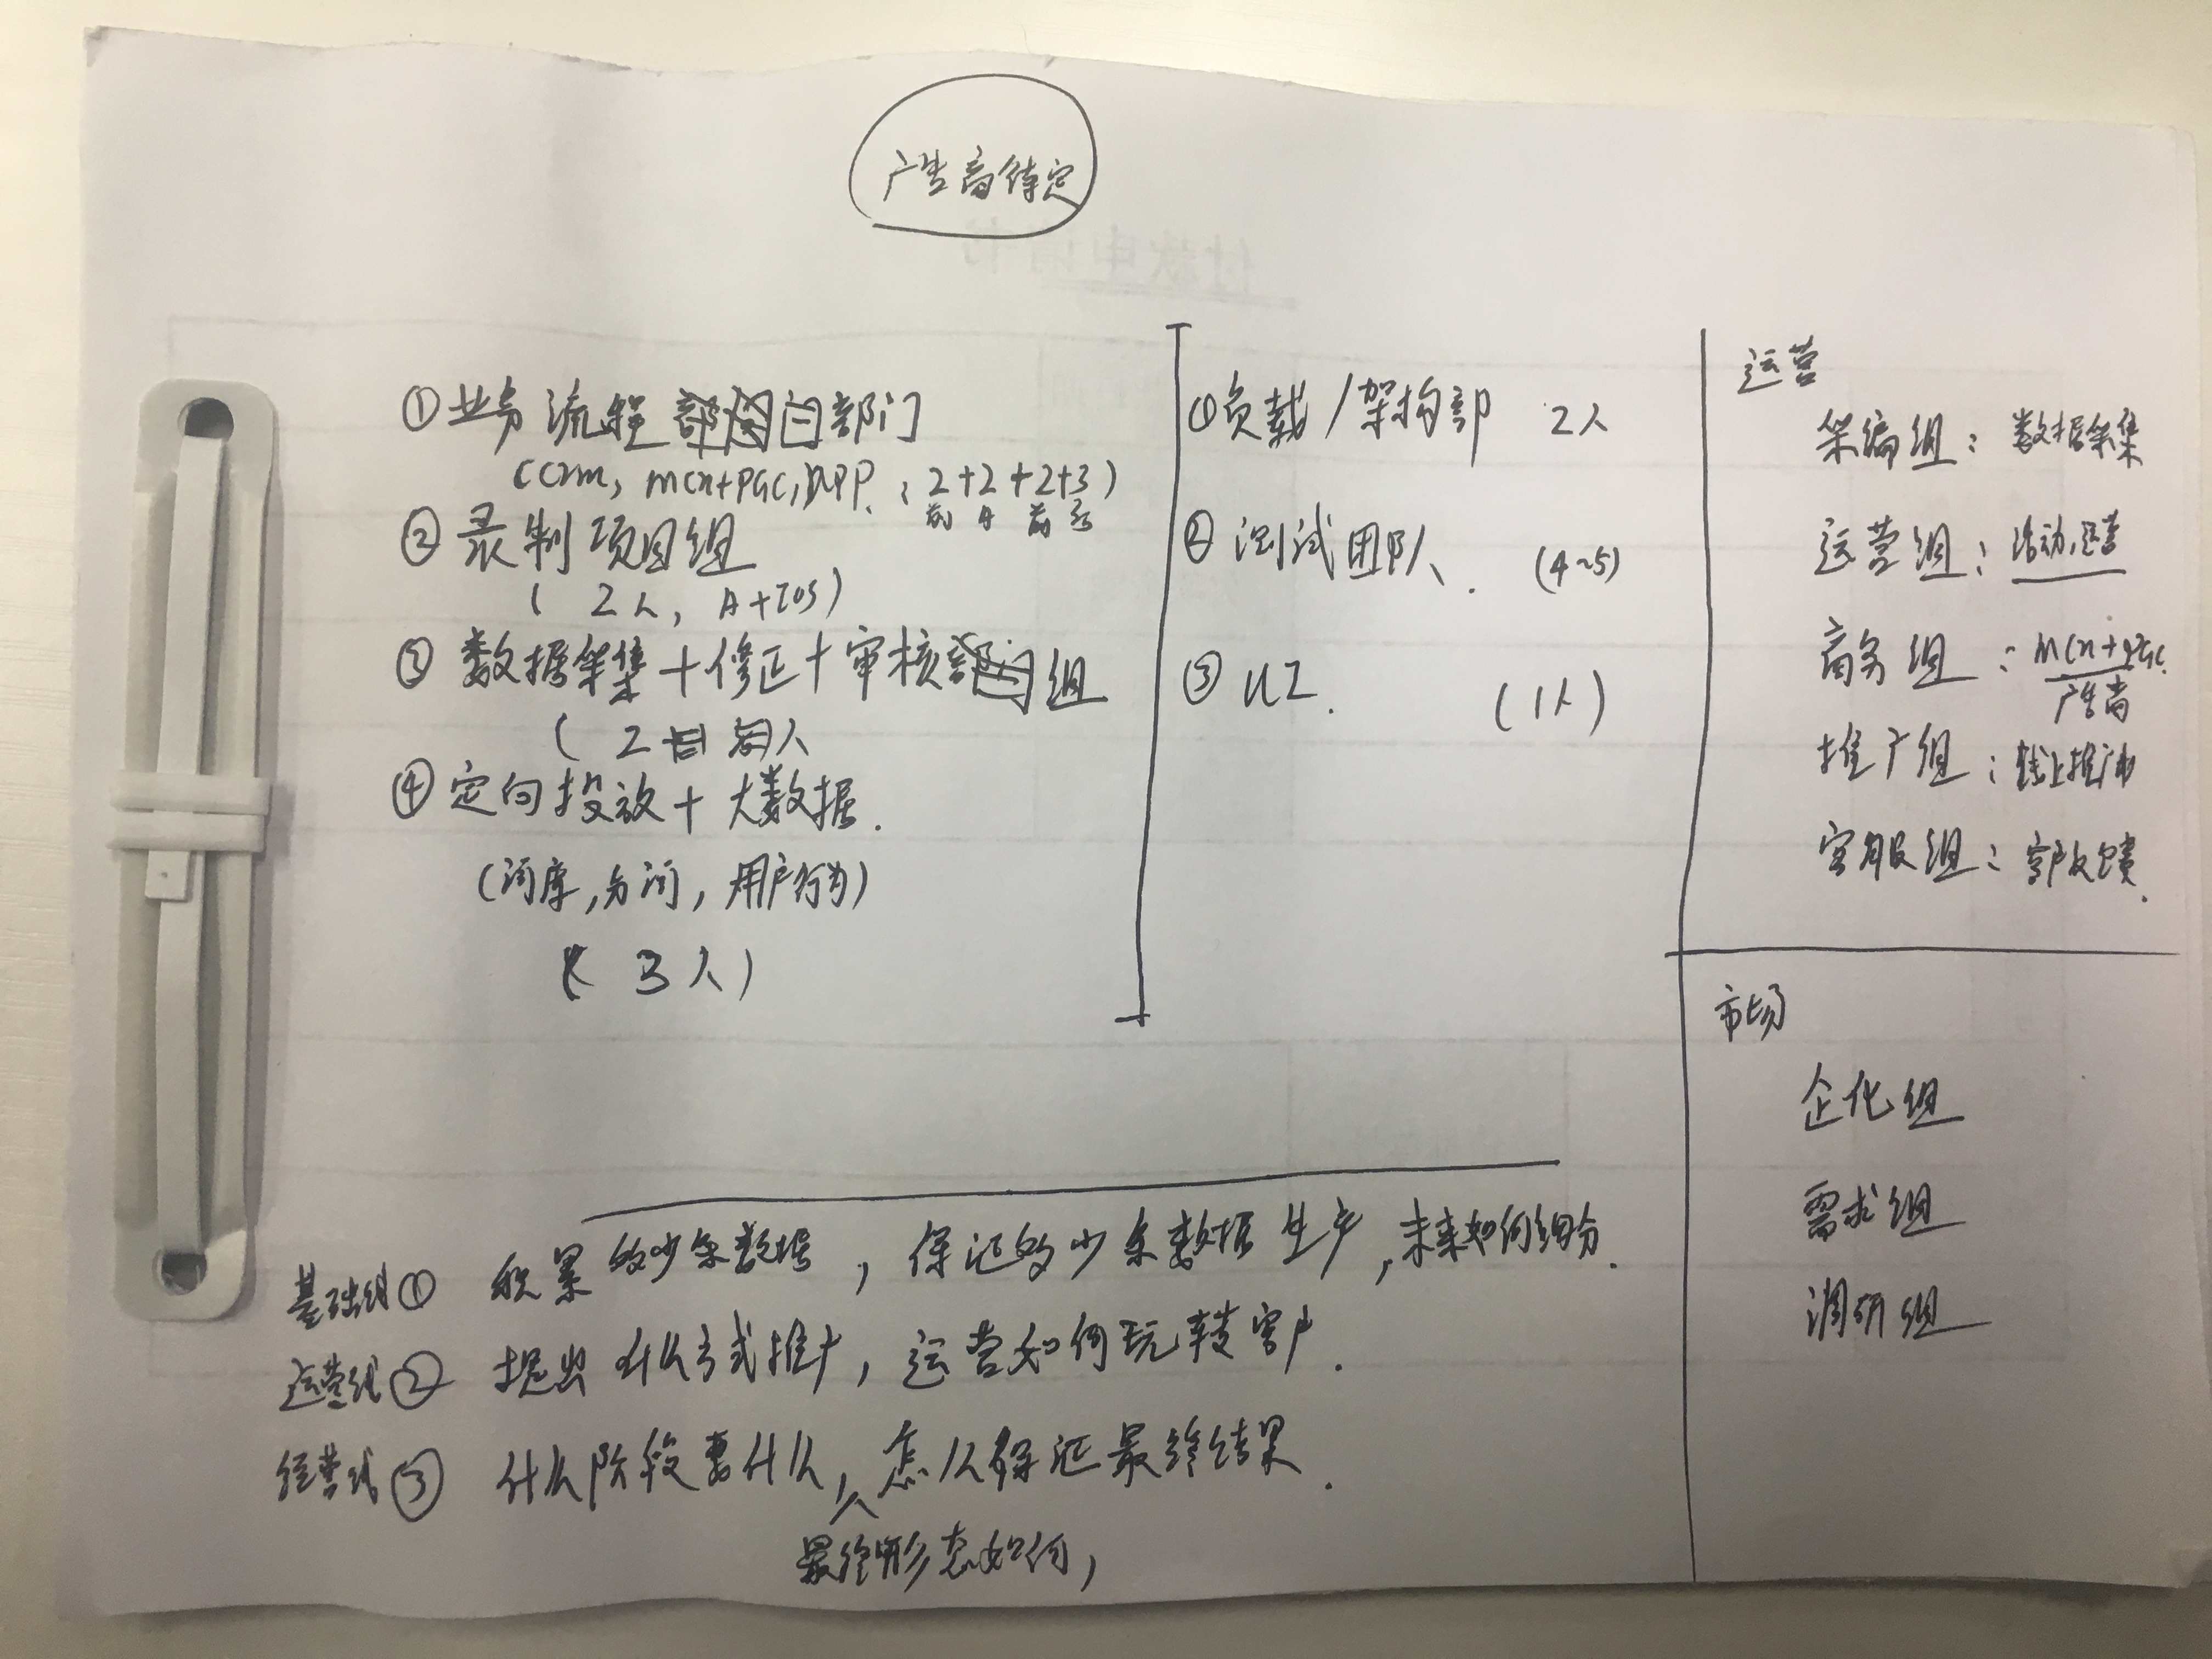 广告商待定
①业务流程部门
(crm, mcn+PGC, APP: 2+2+2+3)
前 A 前
②录制项目组
(2人, A+IOS)
③数据采集+修正+审核组
(2人
④定向投放+大数据.
(词库,分词,用户行为)
(3人)
①负载/架构部 2人
②测试团队. (4~5)
③UI. (1人)
运营
采编组：数据采集
运营组：活动,运营
商务组：mcn+pgc.
广告商
推广组：线上推广
客服组：客户反馈.
市场
企化组
需求组
调研组
基础线① 积累多少条数据，保证多少条数据生产,未来如何细分.
运营线② 提出什么方式推广，运营如何玩转客户.
经营线③ 什么阶段要什么,怎么保证最终结果.
最终形态如何,
付款申请书